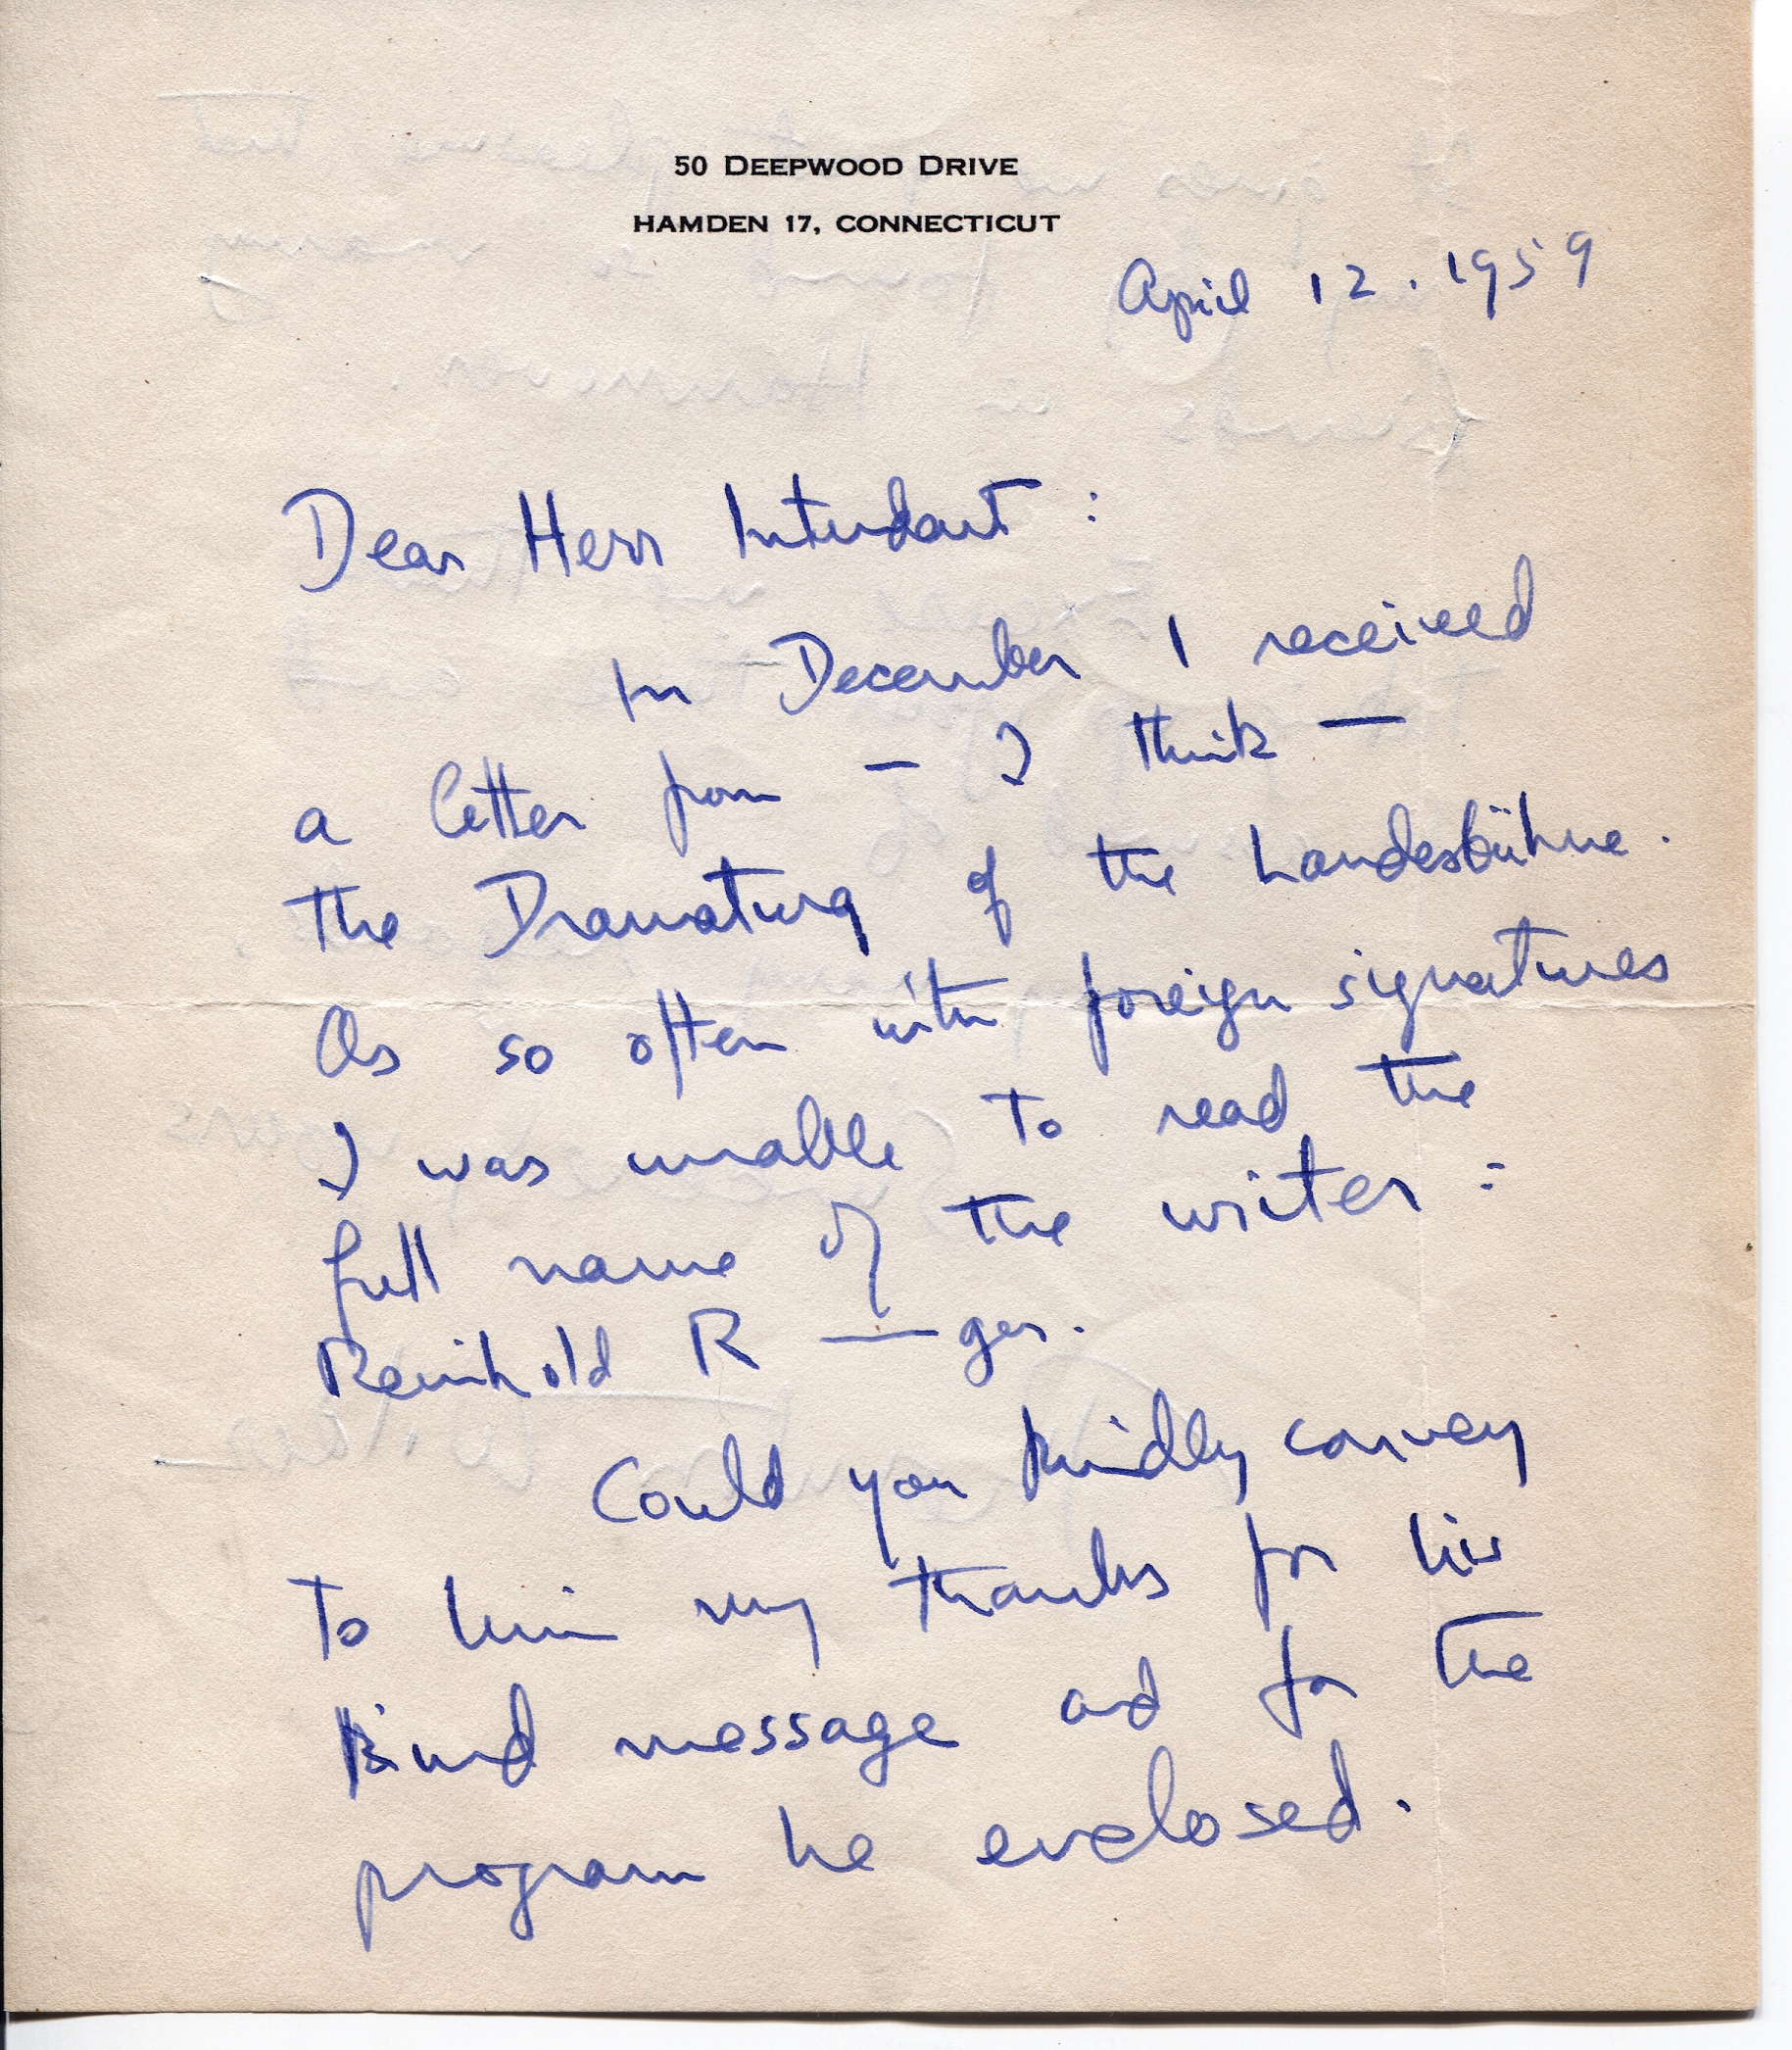 50 DEEPWOOD DRIVE
HAMDEN 17, CONNECTICUT
April 12. 1959
Dear Herr Intendant:
In December I received
a letter from — I think —
the Dramaturg of the Landesbühne.
As so often with foreign signatures
I was unable to read the
full name of the writer:
Reinhold R — ger.
Could you kindly convey
to him my thanks for his
kind message and for the
program he enclosed.